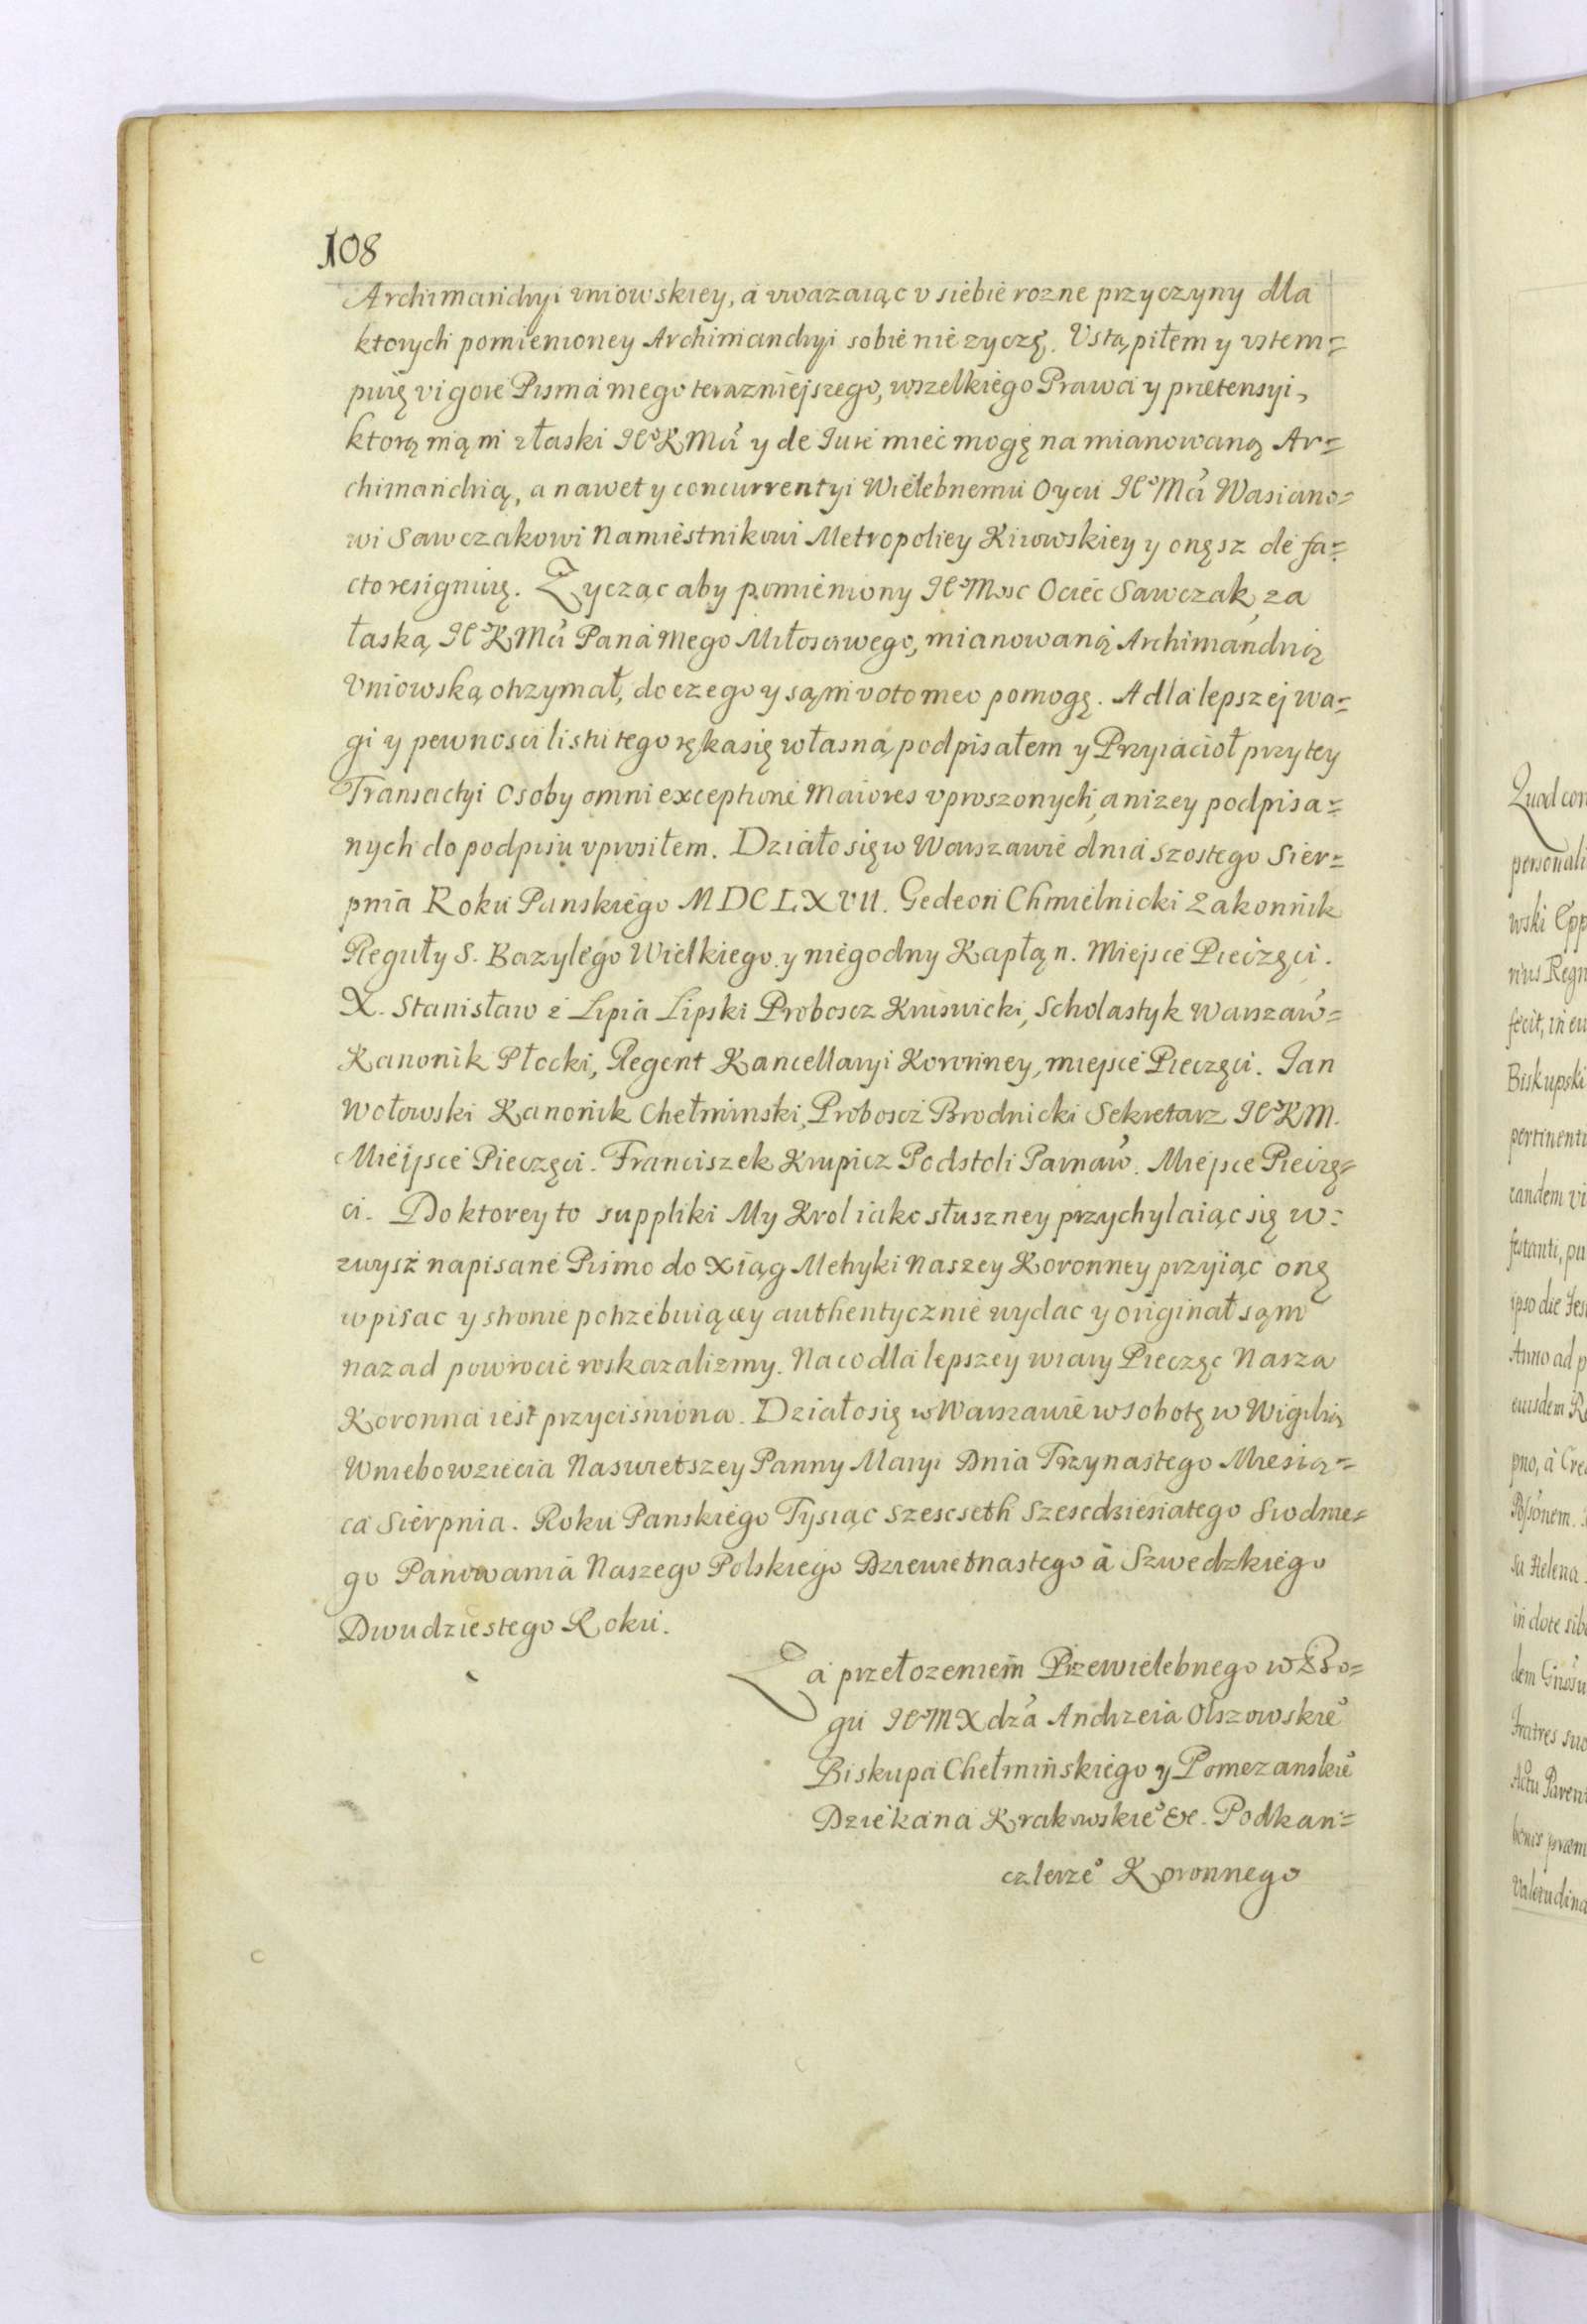 108
Archimandryi vniowskiey, a vwazaiąc v siebie rozne przyczyny dla
ktorych pomienioney Archimandryi sobie nie zyczę. Vstąpiłem y vstem=
puię vigore Pisma mego terazniejszego, wszelkiego Prawa y prætensyi,
ktorą mąm z łaski JeoKMći y de Iure miec mogę na mianowaną Ar=
chimandrią, a nawet y concurrentyi Wielebnemu Oycu JeoMći Wasiano=
wi Sawczakowi Namiestnikowi Metropoliey Kiiowskiey y onęsz de fa=
cto resignuię. Zycząc aby pomieniony JeoMosc Ociec Sawczak za
łaską JeoKMći Pana Mego Miłosciwego, mianowaną Archimandrią
Vniowską otrzymał, do czego y sąm voto meo pomogę. A dla lepszej wa=
gi y pewnosci listu tego ręka się własną podpisałem y Przyiacioł przy tey
Transactyi Osoby omni exceptione Maiores vproszonych, a nizey podpisa=
nych do podpisu vprosiłem. Działo się w Warszawie dnia szostego Sier=
pnia Roku Panskiego MDCLXVII. Gedeon Chmielnicki Zakonnik
Reguły S. Bazylego Wielkiego y niegodny Kapłąn. Miejsce Pieczęci.
X. Stanisław z Lipia Lipski Proboscz Kruswicki, Scholastyk Warszaw=
Kanonik Płocki, Regent Kancellaryi Koronney, miejsce Pieczęci. Jan
Wołowski Kanonik Chełminski, Proboscz Brodnicki Sekretarz JeoKM.
Miejsce Pieczęci. Franciszek Krupicz Podstoli Parnaw. Miejsce Pieczę=
ci. Do ktorey to suppliki My Krol iako słuszney przychylaiąc się w=
zwysz napisane Pismo do Xiąg Metryki Naszey Koronney przyiąc onę
wpisac y stronie potrzebuiącey authentycznie wydac y originał sąm
nazad powrocic roskazalizmy. Na co dla lepszey wiary Pieczęc Nasza
Koronna iest przycisniona. Działo się w Warszawie w sobotę w Wigilią
Wniebowziecia Naswietszey Panny Maryi Dnia Trzynastego Miesią=
ca Sierpnia. Roku Panskiego Tysiąc szescseth Szescdziesiatego Siodme=
go Panowania Naszego Polskiego Dziewietnastego a Szwedzkiego
Dwudziestego Roku.
Za przełozeniem Przewielebnego w Bo=
gu JeoMXdza Andrzeia Olszowskieo
Biskupa Chełmińskiego y Pomezanskieo
Dziekana Krakowskieo &c. Podkan=
clerzeo Koronnego